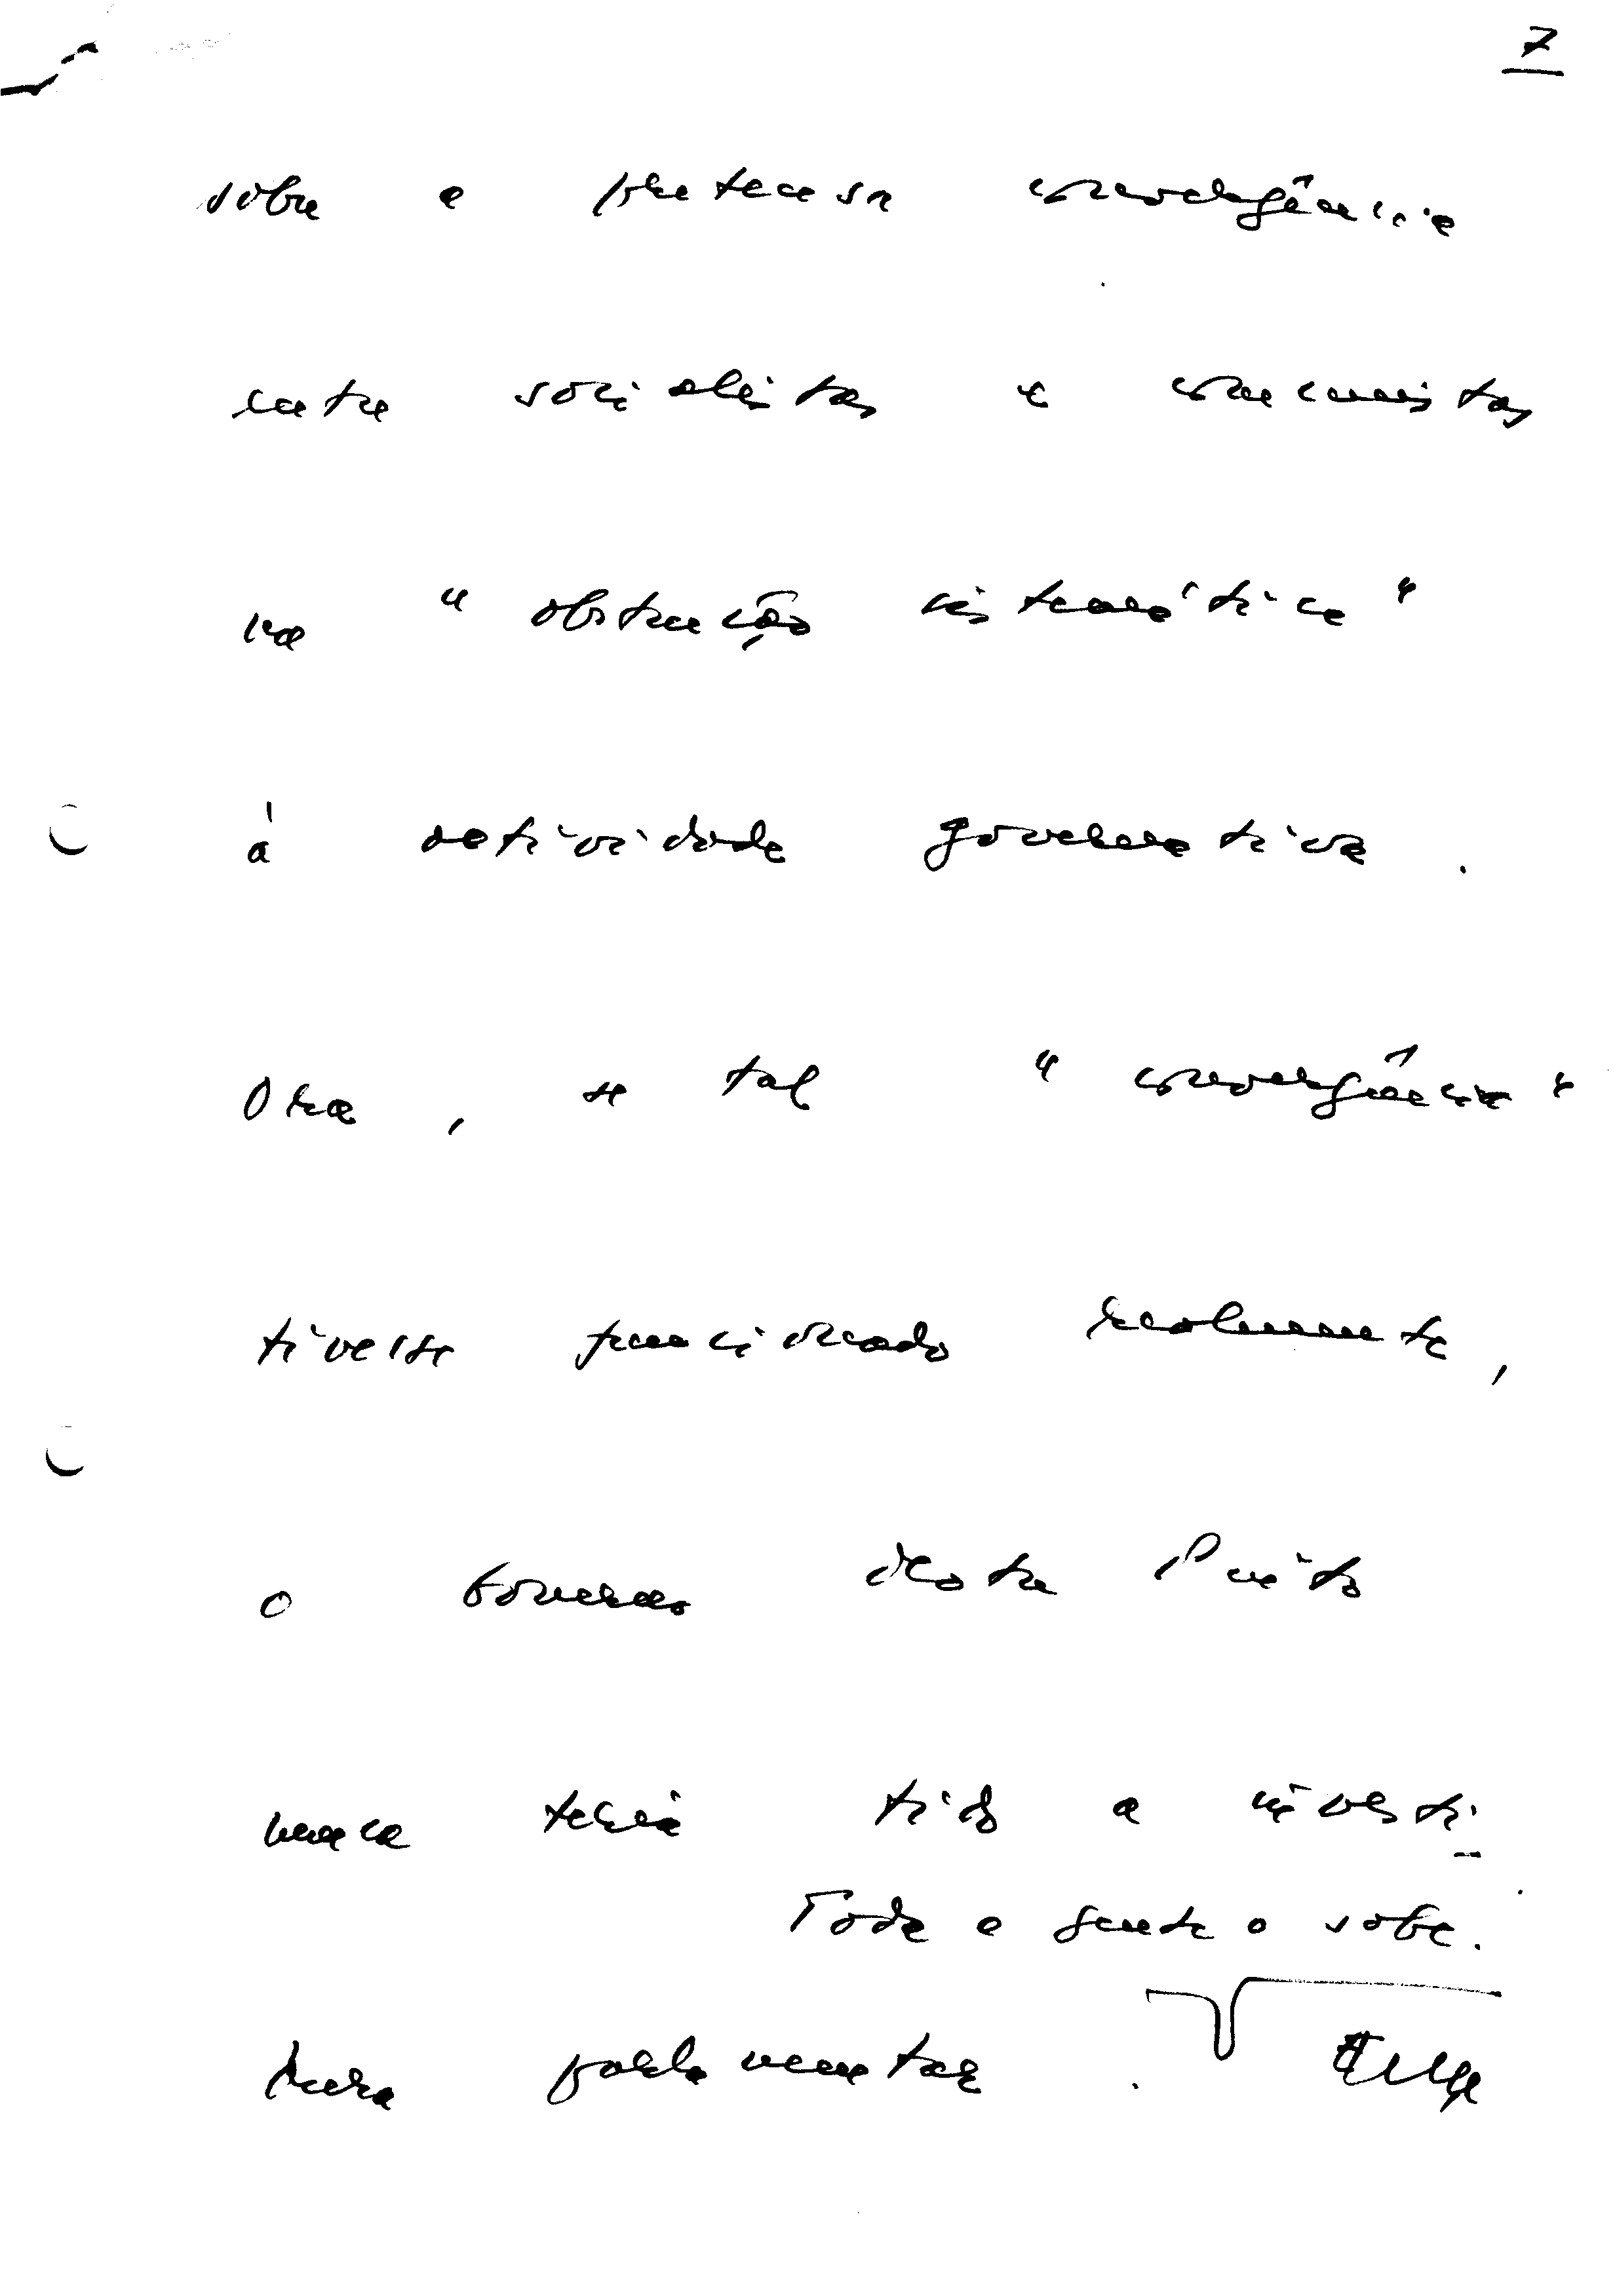 7
sobre a pretensa convergência
entre socialistas e comunistas
na "obstrução sistemática"
à actividade governativa.
Ora, se tal "convergência"
tivesse funcionado realmente,
o Governo Mota Pinto
nunca teria tido a investi-
Toda a gente o sabe.
dura parlamentar.